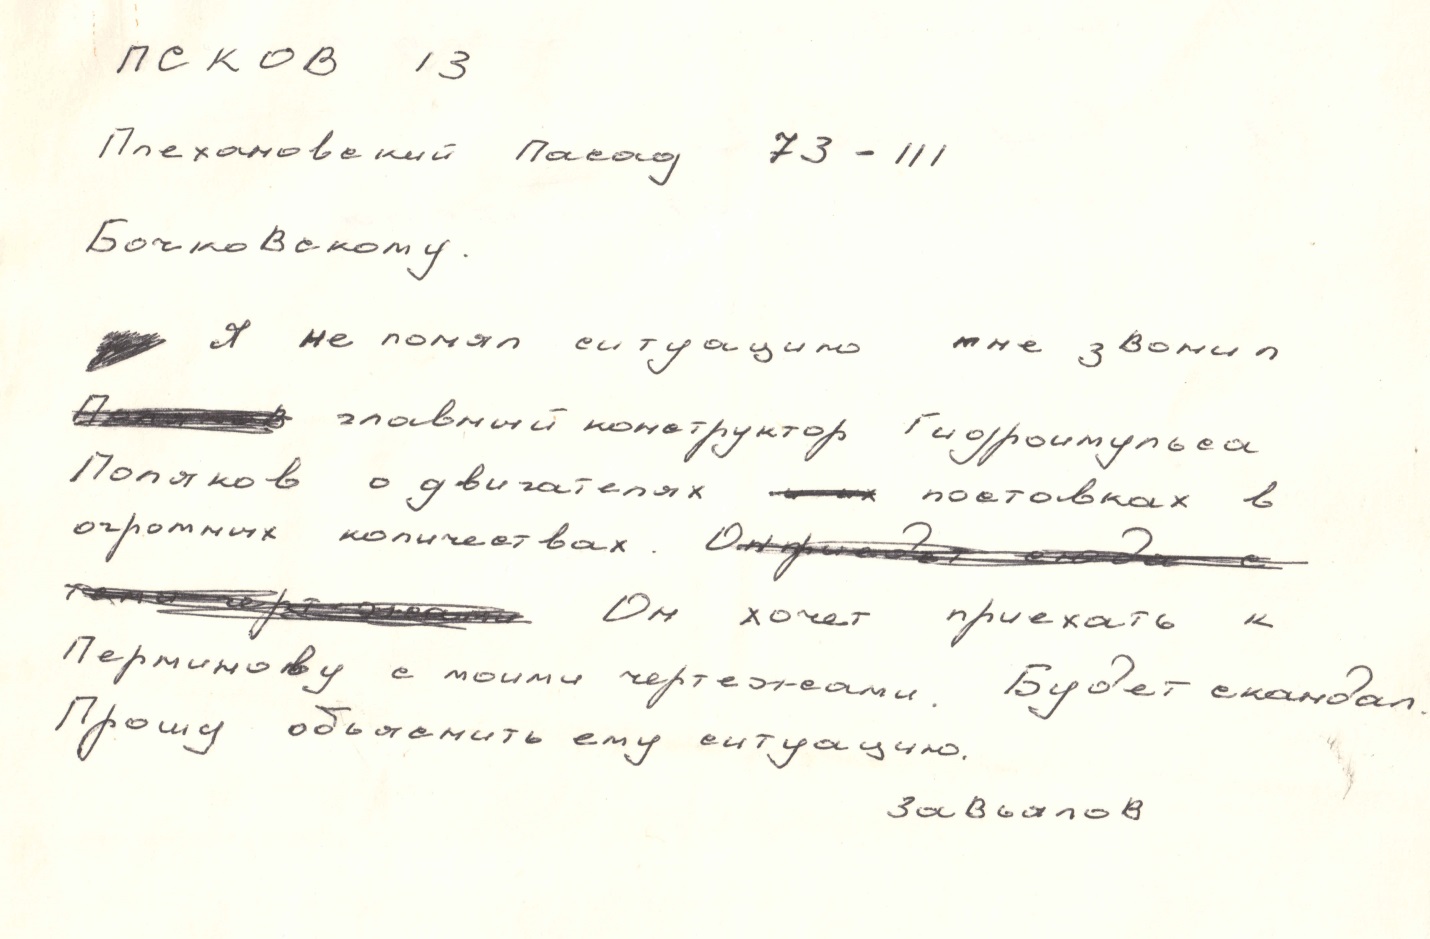 ПСКОВ 13
Плехановский Пасад 73-111
Бочковскому.
Я не понял ситуацию мне звонил
главный конструктор Гидроимульса
Поляков о двигателях поставках в
огромных количествах. Он приедет сюда с
теми чертежами Он хочет приехать к
Перминову с моими чертежами. Будет скандал.
Прошу объяснить ему ситуацию.
Завьялов